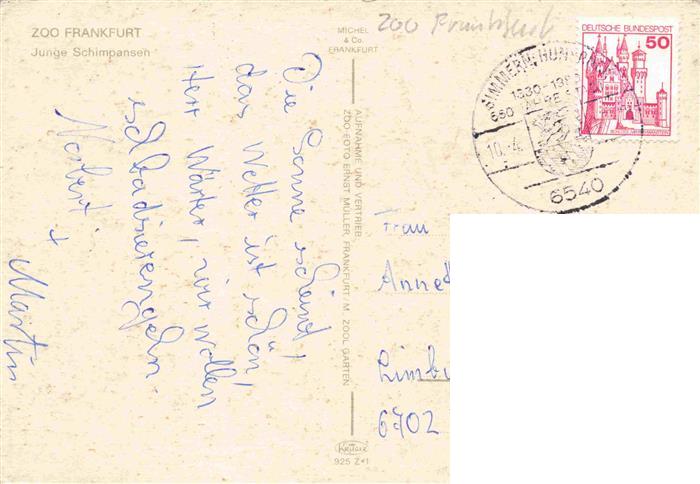 ZOO FRANKFURT
Junge Schimpansen
MICHEL
& Co.
FRANKFURT
ZOO Frankfurt
DEUTSCHE BUNDESPOST
50
SIMMERN, HUNSRÜCK
1330-19
650 JAHRE
10.-4.
6540
Die Sonne scheint,
das Wetter ist schön,
Herr Wärter, wir wollen
Norbert +
Martin
AUFNAHME UND VERTRIEB
ZOO-FOTO ERNST MÜLLER, FRANKFURT/M. ZOOL GARTEN
Frau
Annet
Limbu
6702
Krüger
925 Z•1